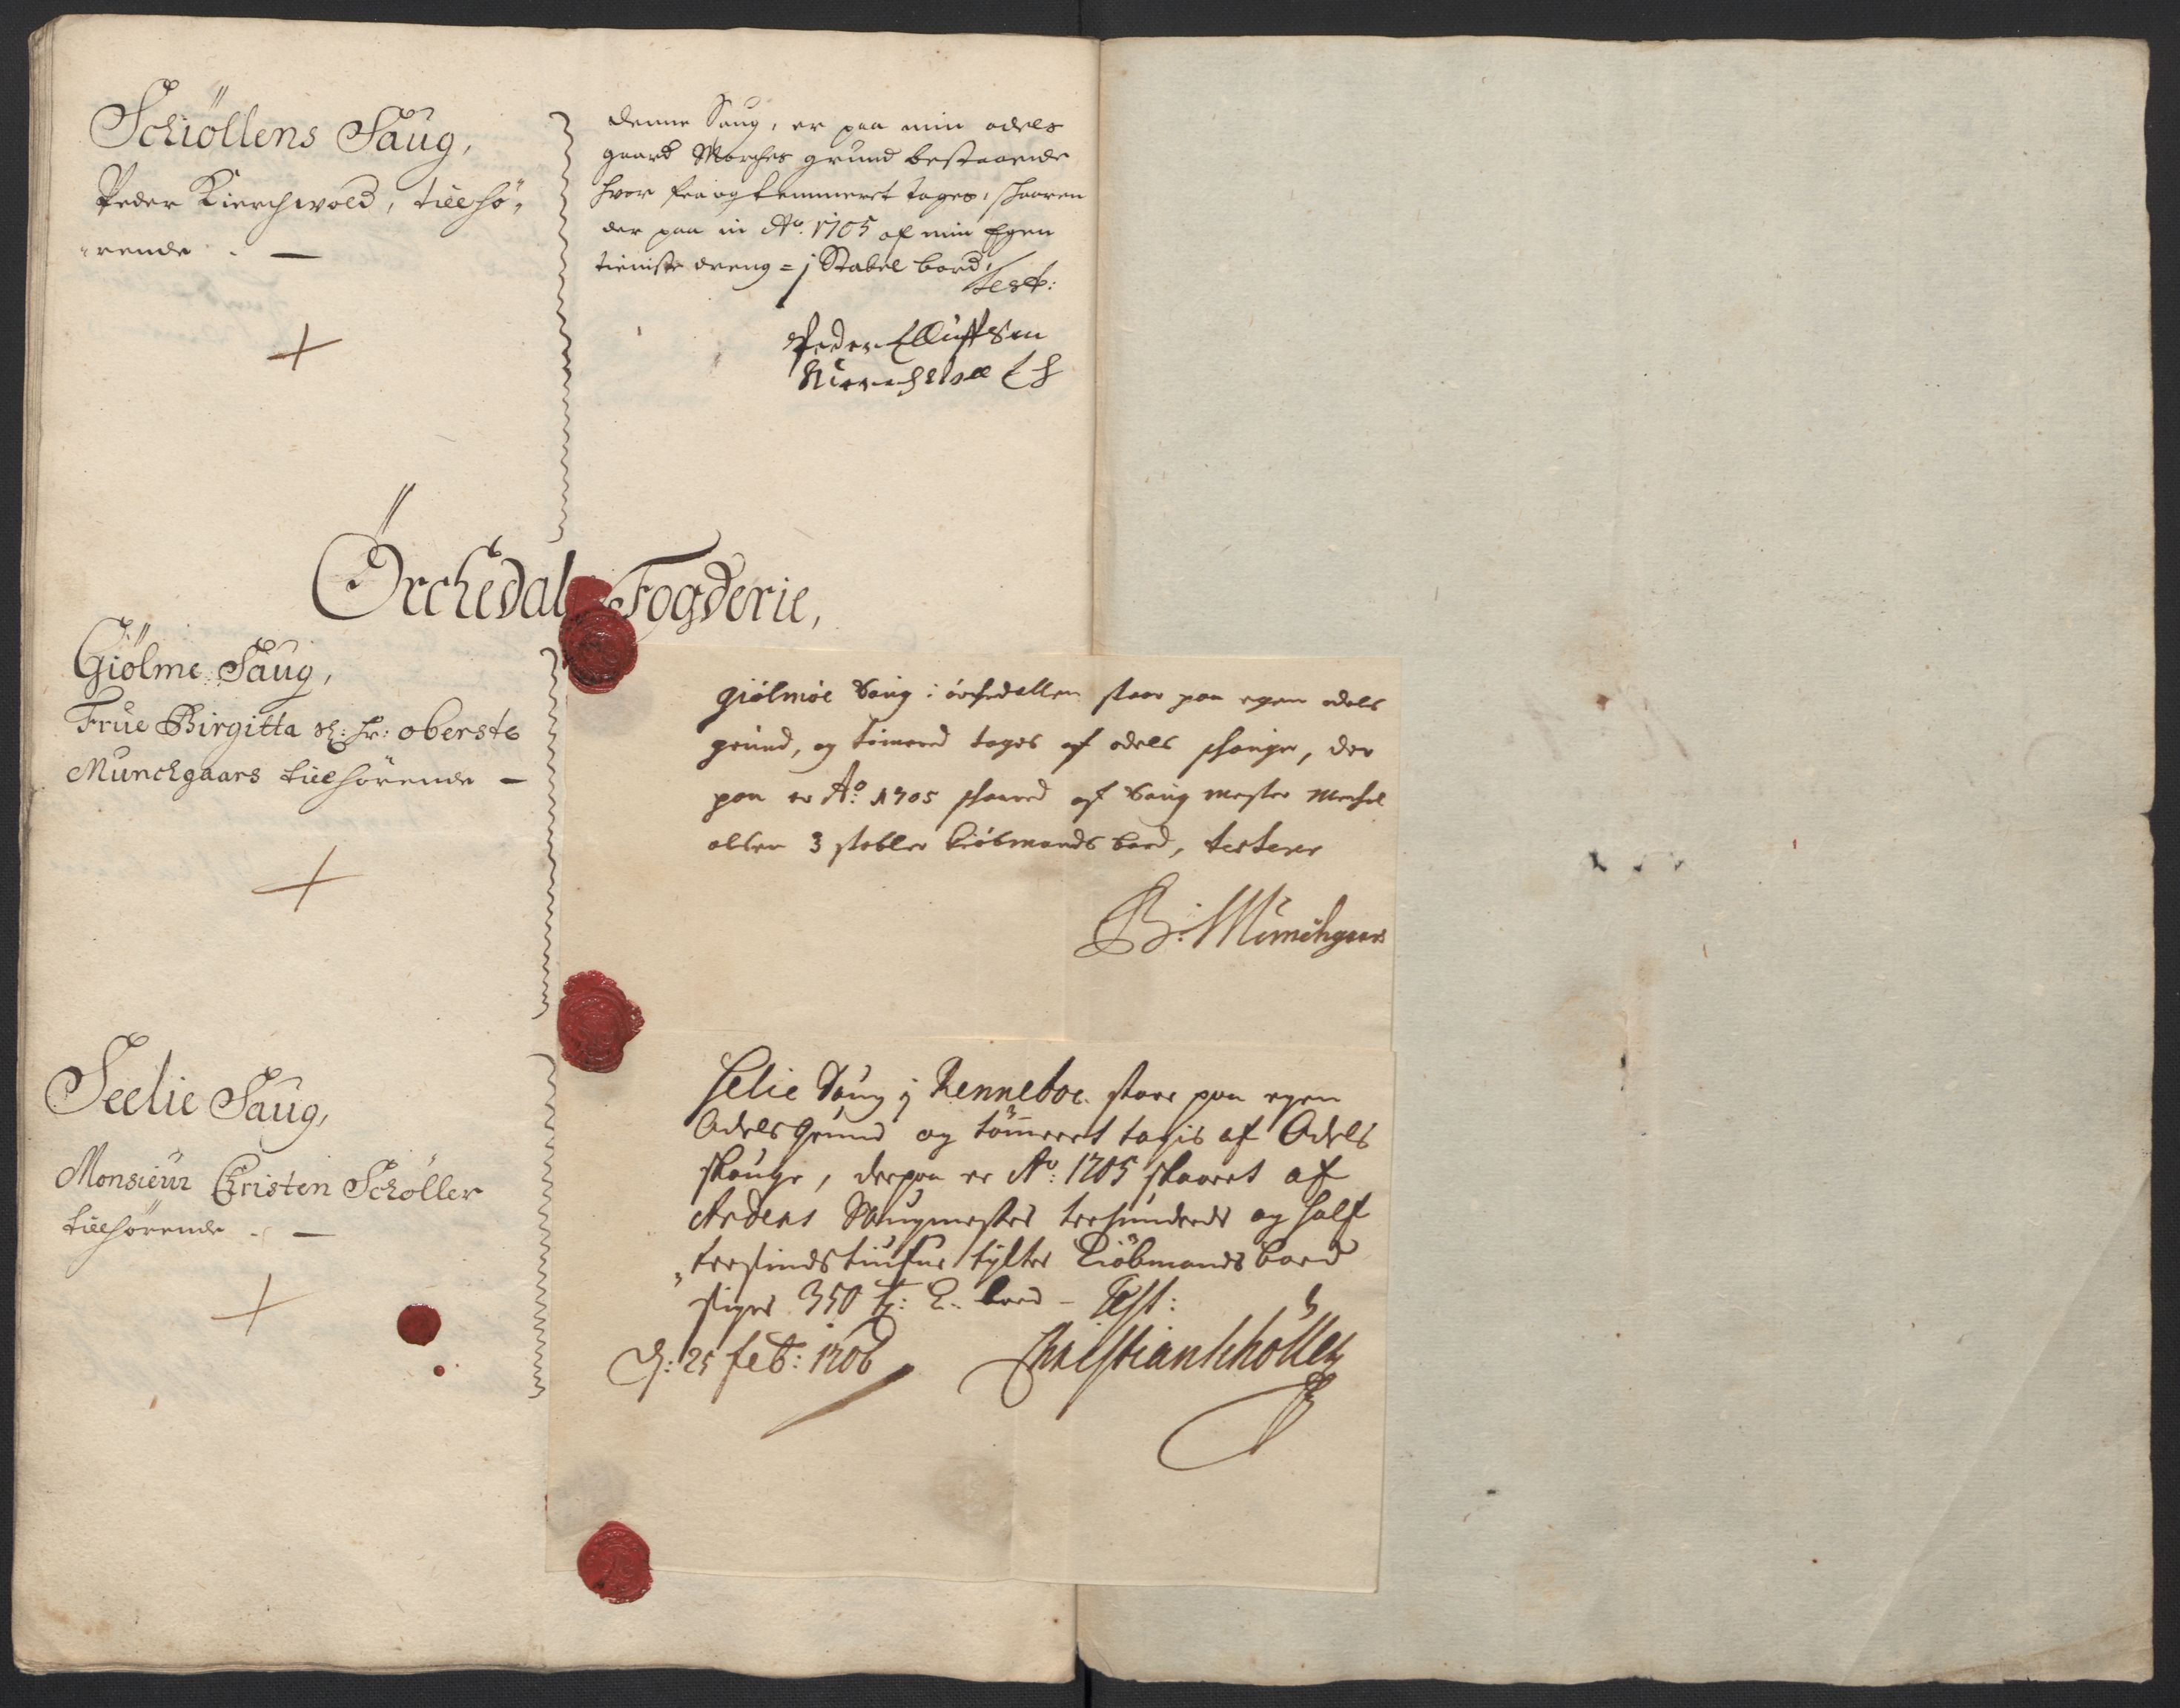 Schiöllens Saug,
Peder Kierchwold, tilhö,
rende . —
denne Saug, er paa min odels
gaard Morches grund bestaaende
hvor fra og temmeret tages, skaaren
der paa in Aº. 1705 af min Egen
tieniste dreng = j Stabel bord,
Test:
Peder Elluffsen
Kierchwoll
Örchedals Fogderie,
Giölme Saug,
Frue Birgitta Sl: Hr: oberste
Munchgaars tilhörende —
giölmöe Saug i örchedallen staar paa egen odels
grund, og tömered tages af odels skouge, der
paa er Aº: 1705 skaared af Saug mester Mechel
olsen 3 stabler kiöbmands bord, testerer
B: Münchgaars
Seelie Saug,
Monsieur Christen Schöller
tilhörende . —
Selie Saug j Renneboe staar paa egen
Odels Grund og tömmeret tagis af Odels
skouge, derpaa er Aº: 1705 skaaret af
Anders Saugmester trehundrede og half
tresindstiufue tylter Kiöbmands bord
siger 350 ty: K: bord – Test:
D: 25 feb: 1706
Christian Schöller